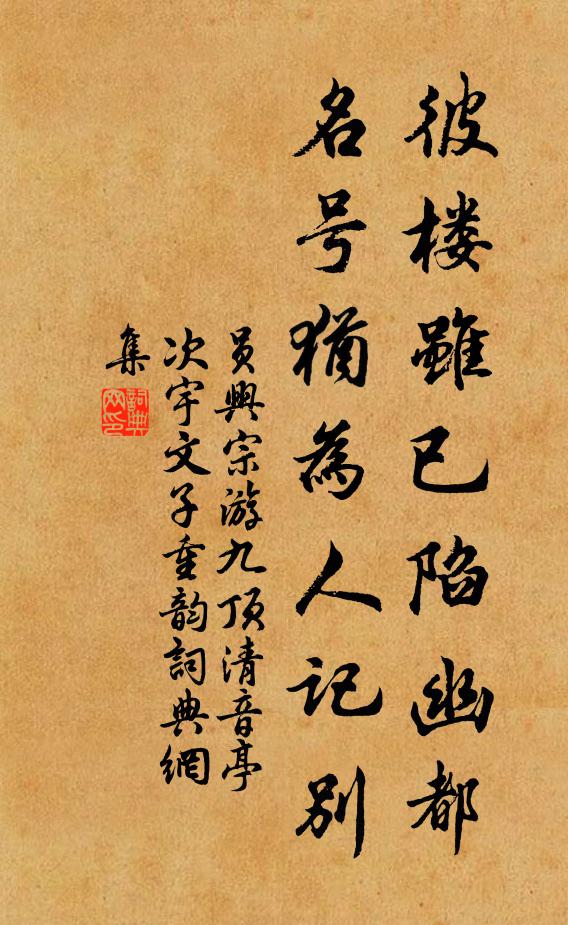 彼楼雖已陷幽都
名号猶為人记别
员興宗游九顶清音亭
次宇文子重韵詞典網
集
詞典
网印